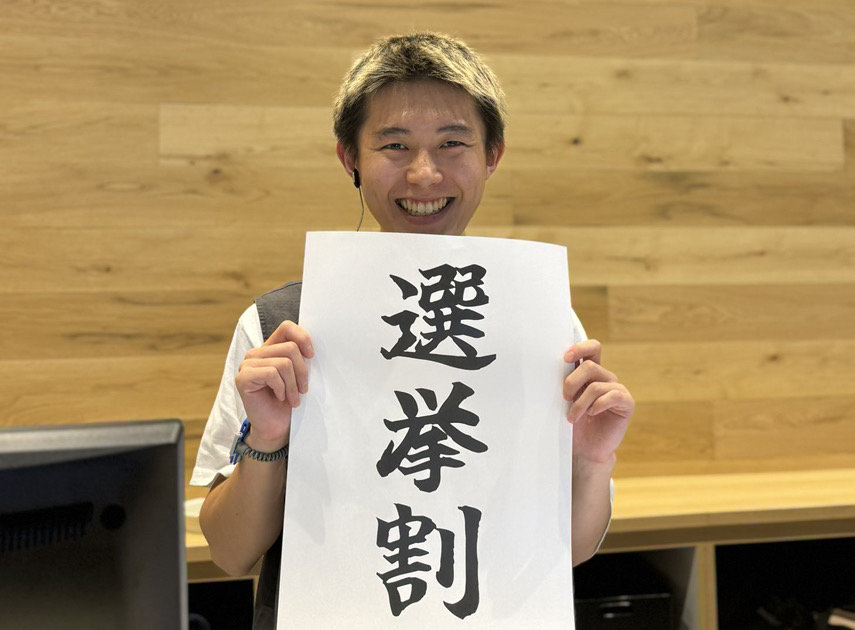 選挙割